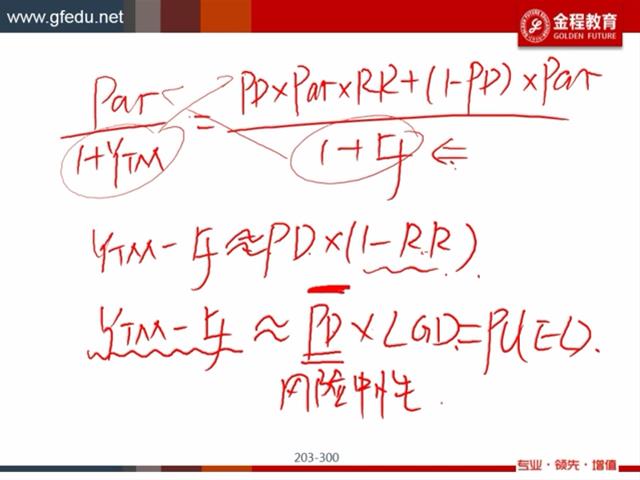 www.gfedu.net
金程教育
GOLDEN FUTURE
Par / 1+YTM = PD×Par×RR+(1-PD)×Par / 1+rf ⇐
YTM-rf≈PD×(1-RR).
YTM-rf≈PD×LGD=PV(EL).
风险中性.
203-300
专业·领先·增值